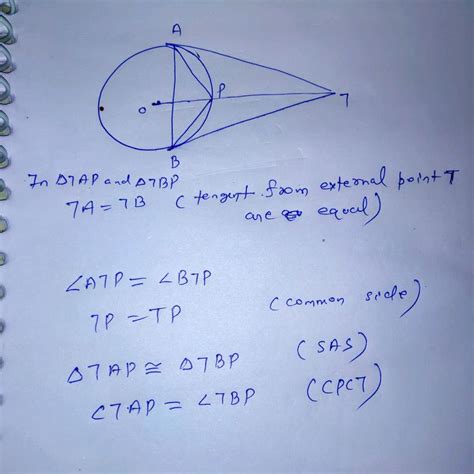 A
P
O
T
B
In ∆TAP and ∆TBP
TA = TB (tengent from external point T
are equal)
∠ATP = ∠BTP
TP = TP (common side)
∆TAP ≅ ∆TBP (SAS)
∠TAP = ∠TBP (CPCT)